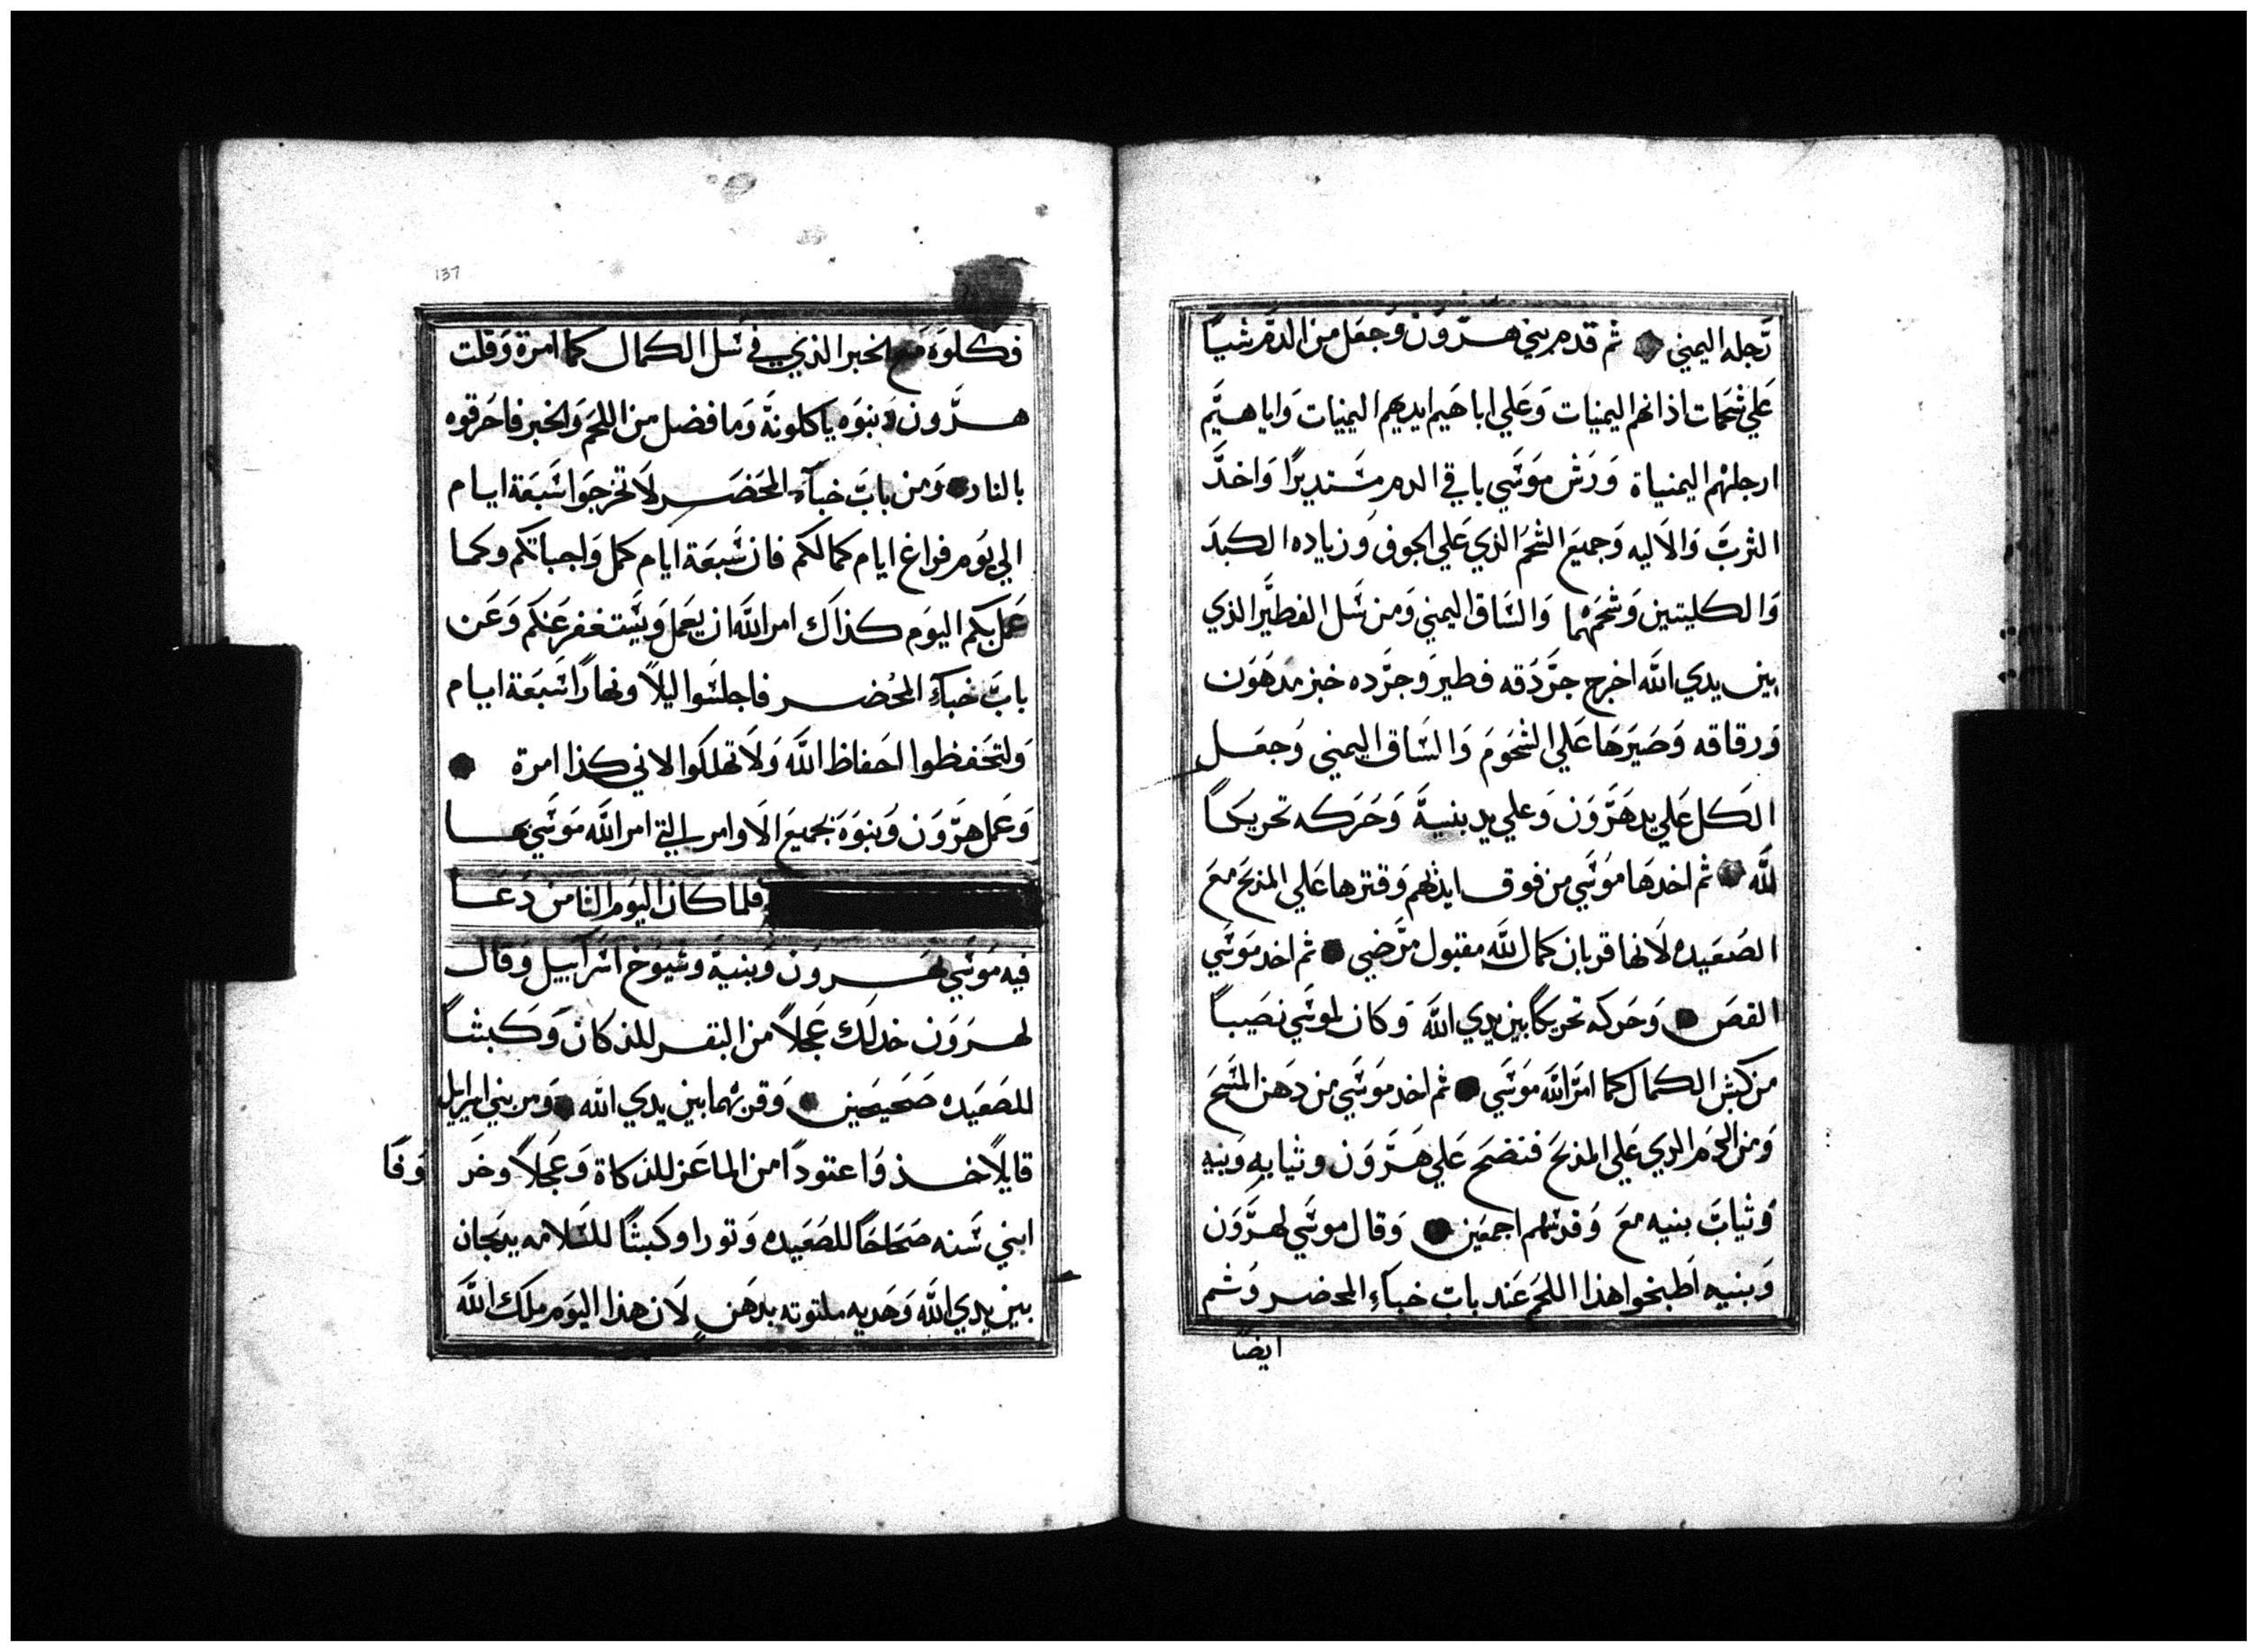 رّجله اليمني ثم قدم بني هرّوّن وَجعَل من الدمّ شياً
عَلي شحمات اذانهم اليمنيات وَعَلي اباهَيم ايديهم اليمنيات وَاباهيَم
ارجلهم اليمنياة وَرَش مَوسَي باقي الدم مسَتديرًا وَاخدَّ
الثربَّ وَالاَليه وَجميعَ الشحَم الذي عَلي الجوف وَزياده الكبدَ
وَالكليتين وَشحمَهما وَالسَاق اليمني وَمن سَل الفطيَر الذي
بين يدي اللّه اخرج جرَّدَقه فطيرَ وَجرَّده خبز مدهَوَن
وَرقاقه وَصَيَرَهَا عَلي الشحَومَ وَالسَاق اليمني وَجعَل
الكَل عَلي يد هَرَّوَن وَعلي يد بنيةَ وَحَرَكه تحريكاً
للّه ثم اخدهَا مَوسَي من فوق ايديهم وَقترها عَلي المذبحَ معَ
الصَعَيده لاَنها قربان كمال للّه مقبول مرَّضي ثم اخد مَوسَي
القصَ وَحَركه تحريكًا بين يدي اللّه وَكان لموسَي نصَيباً
من كبش الكمال كما امَر اللّه مَوسَي ثم اخد مَوسَي من دَهن المسَحَ
وَمن الدَم الدي عَلي المذبحَ فنضحَ عَلي هَرَّوَن وثيابه وَبنيه
وَثيابَ بنيه معَ وَقدسَهم اجمعَين وَقال موسَي لهرَّوَن
وَبنيه اَطبخوا هذا اللحَم عَند بابَ خباَءِ المحضر وَثم
ايضًا
137
فكلوَه مَع الخبر الذي في سَل الكمال كما امرة وَقلت
هرَّون وَبنوَه ياكلونةَ وَما فضل من اللحَم وَالخبر فاحَرقوه
بالنار وَمن بابَ خباَء المحَضَر لاَ تخرجوَا سَبعَة ايام
الي يوُم فراغ ايام كمالكم فان سَبعَة ايام كمل وَاجباتكم وكما
عَمل بكم اليوَم كذاَك امر اللّه ان يعَمل وَيسَتغفر عَنكَم وَعَن
بابَ خباَءِ المحُضر فاجلسَوا ليلاً ونهاراً سَبعَة ايام
وَلتحَفظوا احَفاظ اللّه وَلاَ تهلكَوا لاني كذا امرة
وَعَمل هرَّوَن وَبنوَه بجميعَ الاَوامر التي امر اللّه مَوسَي بها
فلما كان اليوَم الثامن دَعَا
فيه مَوسَي لهروَن وَبنيةَ وشيوَخ اسَراَييل وَقال
لهرَوَن خد لَك عَجلاً من البقر للذكاَن وَكَبشاً
للصَعَيده صَحَيحَين وَقربهما بين يدي اللّه وَمن بني اسراييل
قايلاً خذ وَا عتودًا من الماعَز للذكاة وَعَجلاً وخرَ
وَفَا
ابني سَنه صَحَاحَاً للصَعَيده وَتورا وكبشًا للسَلامه يدبحَان
بين يدي اللّه وَهَديه ملتوته بدهَن لاَن هذا اليوَم ملَك اللّه